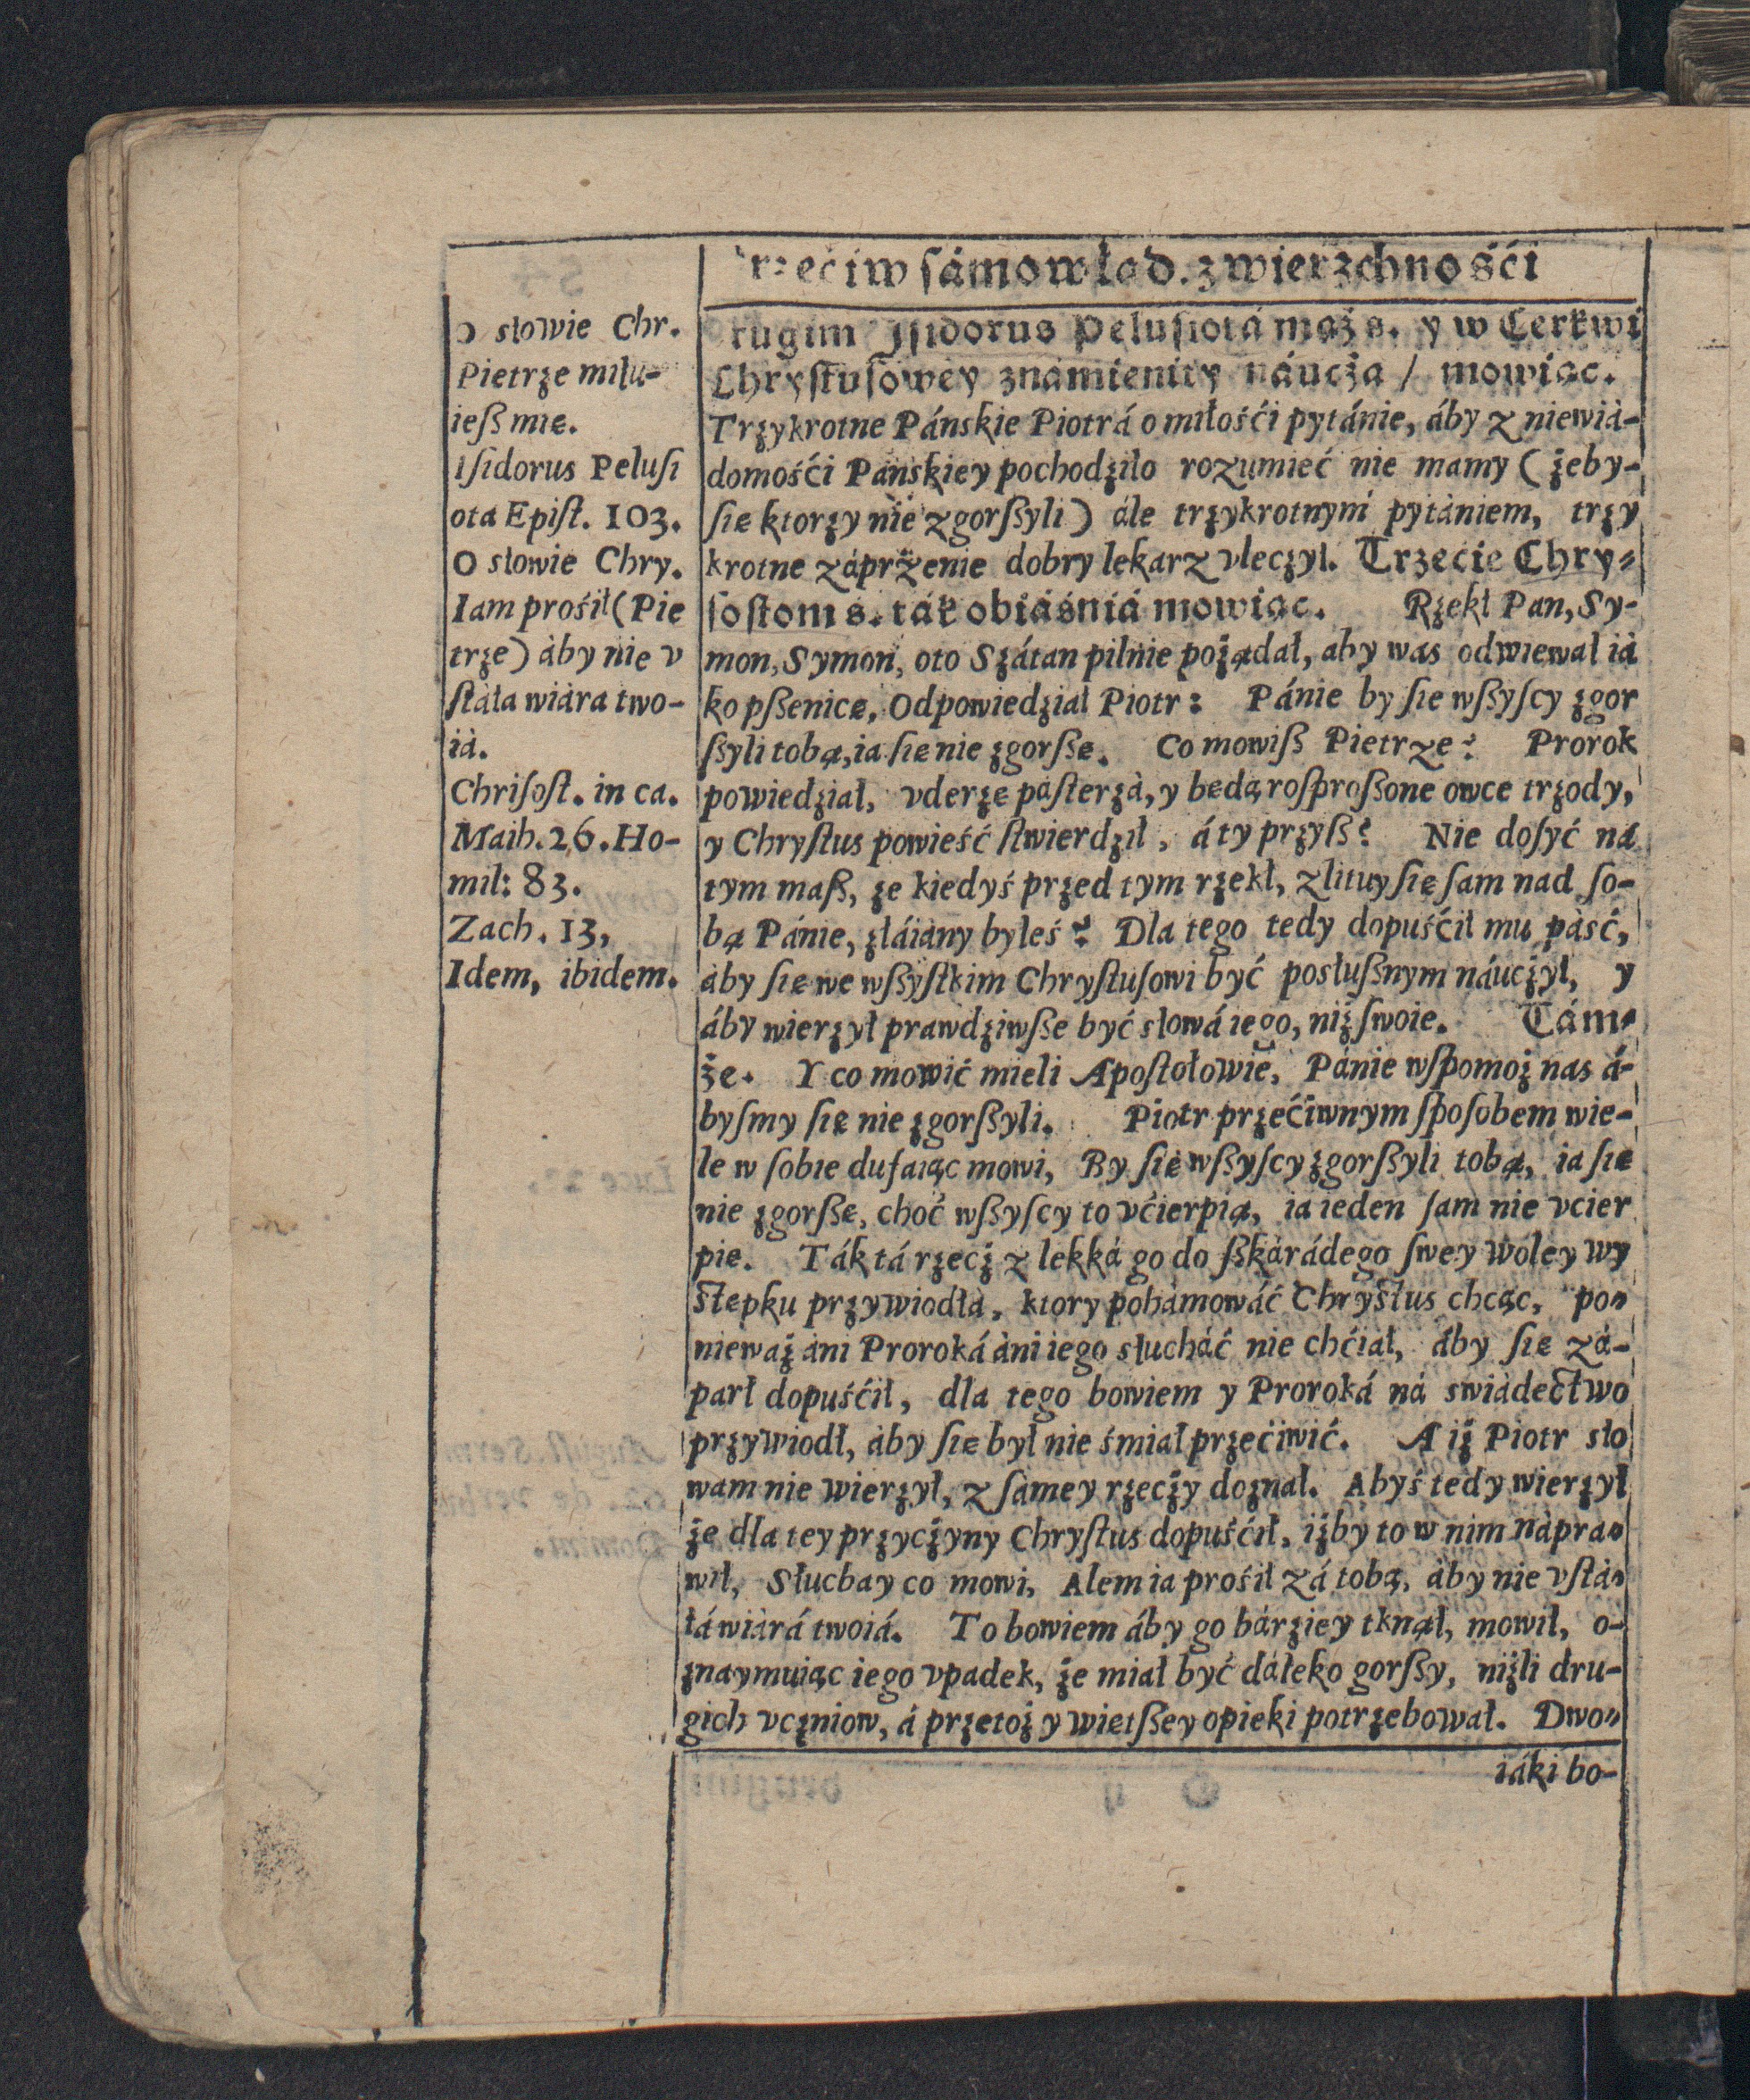 rzećiw sámowład. zwierzchnośći
o słowie Chr.
Pietrze miłu-
ieß mie.
Iſidorus Peluſi
ota Epiſt. 103.
O słowie Chry.
Iam prośił (Pie
trze) áby nie v
ſtáła wiára two-
iá.
Chriſoſt. in ca.
Math. 26. Ho-
mil: 83.
Zach. 13,
Idem, ibidem.
rugim Iſidorus Peluſiotá mąż s. y w Cerkwi
Chryſtuſowey známienity náucża / mowiąc.
Trzykrotne Pánskie Piotrá o miłośći pytánie, áby z niewiá-
domośći Pánskiey pochodziło rozumieć nie mamy (żeby-
ſię ktorzy nie zgorßyli) ále trzykrotnym pytániem, trzy
krotne záprżenie dobry lekarz vleczył. Trzećie Chry-
ſoſtom s. ták obiáśniá mowiąc. Rzekł Pan, Sy-
mon, Symon, oto Szátan pilnie pożądał, aby was odwiewał iá
ko pßenicę, Odpowiedział Piotr: Pánie by ſię wßyſcy zgor
ßyli tobą, ia ſię nie zgorßę. Co mowiß Pietrze? Prorok
powiedział, vderzę páſterzá, y będą roſproßone owce trzody,
y Chryſtus powieść ſtwierdził, á ty przyß? Nie doſyć ná
tym maß, że kiedyś przed tym rzekł, zlituy ſię ſam nad ſo-
bą Pánie, złáiány byłeś? Dla tego tedy dopuśćił mu páść,
áby ſię we wßyſtkim Chryſtuſowi być posłußnym náucżył, y
áby wierzył prawdziwße być słowá iego, niż ſwoie. Tám-
że. Y co mowić mieli Apoſtołowie, Pánie wſpomoż nas á-
byſmy ſię nie zgorßyli. Piotr przećiwnym ſpoſobem wie-
le w ſobie dufaiąc mowi, By ſię wßyſcy zgorßyli tobą, ia ſię
nie zgorßę, choć wßyſcy to vćierpią, ia ieden ſam nie vcier
pię. Ták tá rzecż z lekká go do ßkárádego ſwey woley wy
ſtępku przywiodłá, ktory pohámowáć Chryſtus chcąc, po-
nieważ áni Proroká áni iego słucháć nie chćiał, áby ſię zá-
parł dopuśćił, dla tego bowiem y Proroká ná swiádectwo
przywiodł, áby ſię był nie śmiał przećiwić. A iż Piotr sło
wam nie wierzył, z ſámey rzecży doznał. Abyś tedy wierzył
że dla tey przycżyny Chryſtus dopuśćił, iżby to w nim nápra-
wił, Słuchay co mowi, Alem ia prośił zá tobą, áby nie vſtá-
łá wiárá twoiá. To bowiem áby go bárziey tknął, mowił, o-
znaymuiąc iego vpadek, że miał być dáleko gorßy, niżli dru-
gich vczniow, á przetoż y więtßey opieki potrzebował. Dwo-
iáki bo-